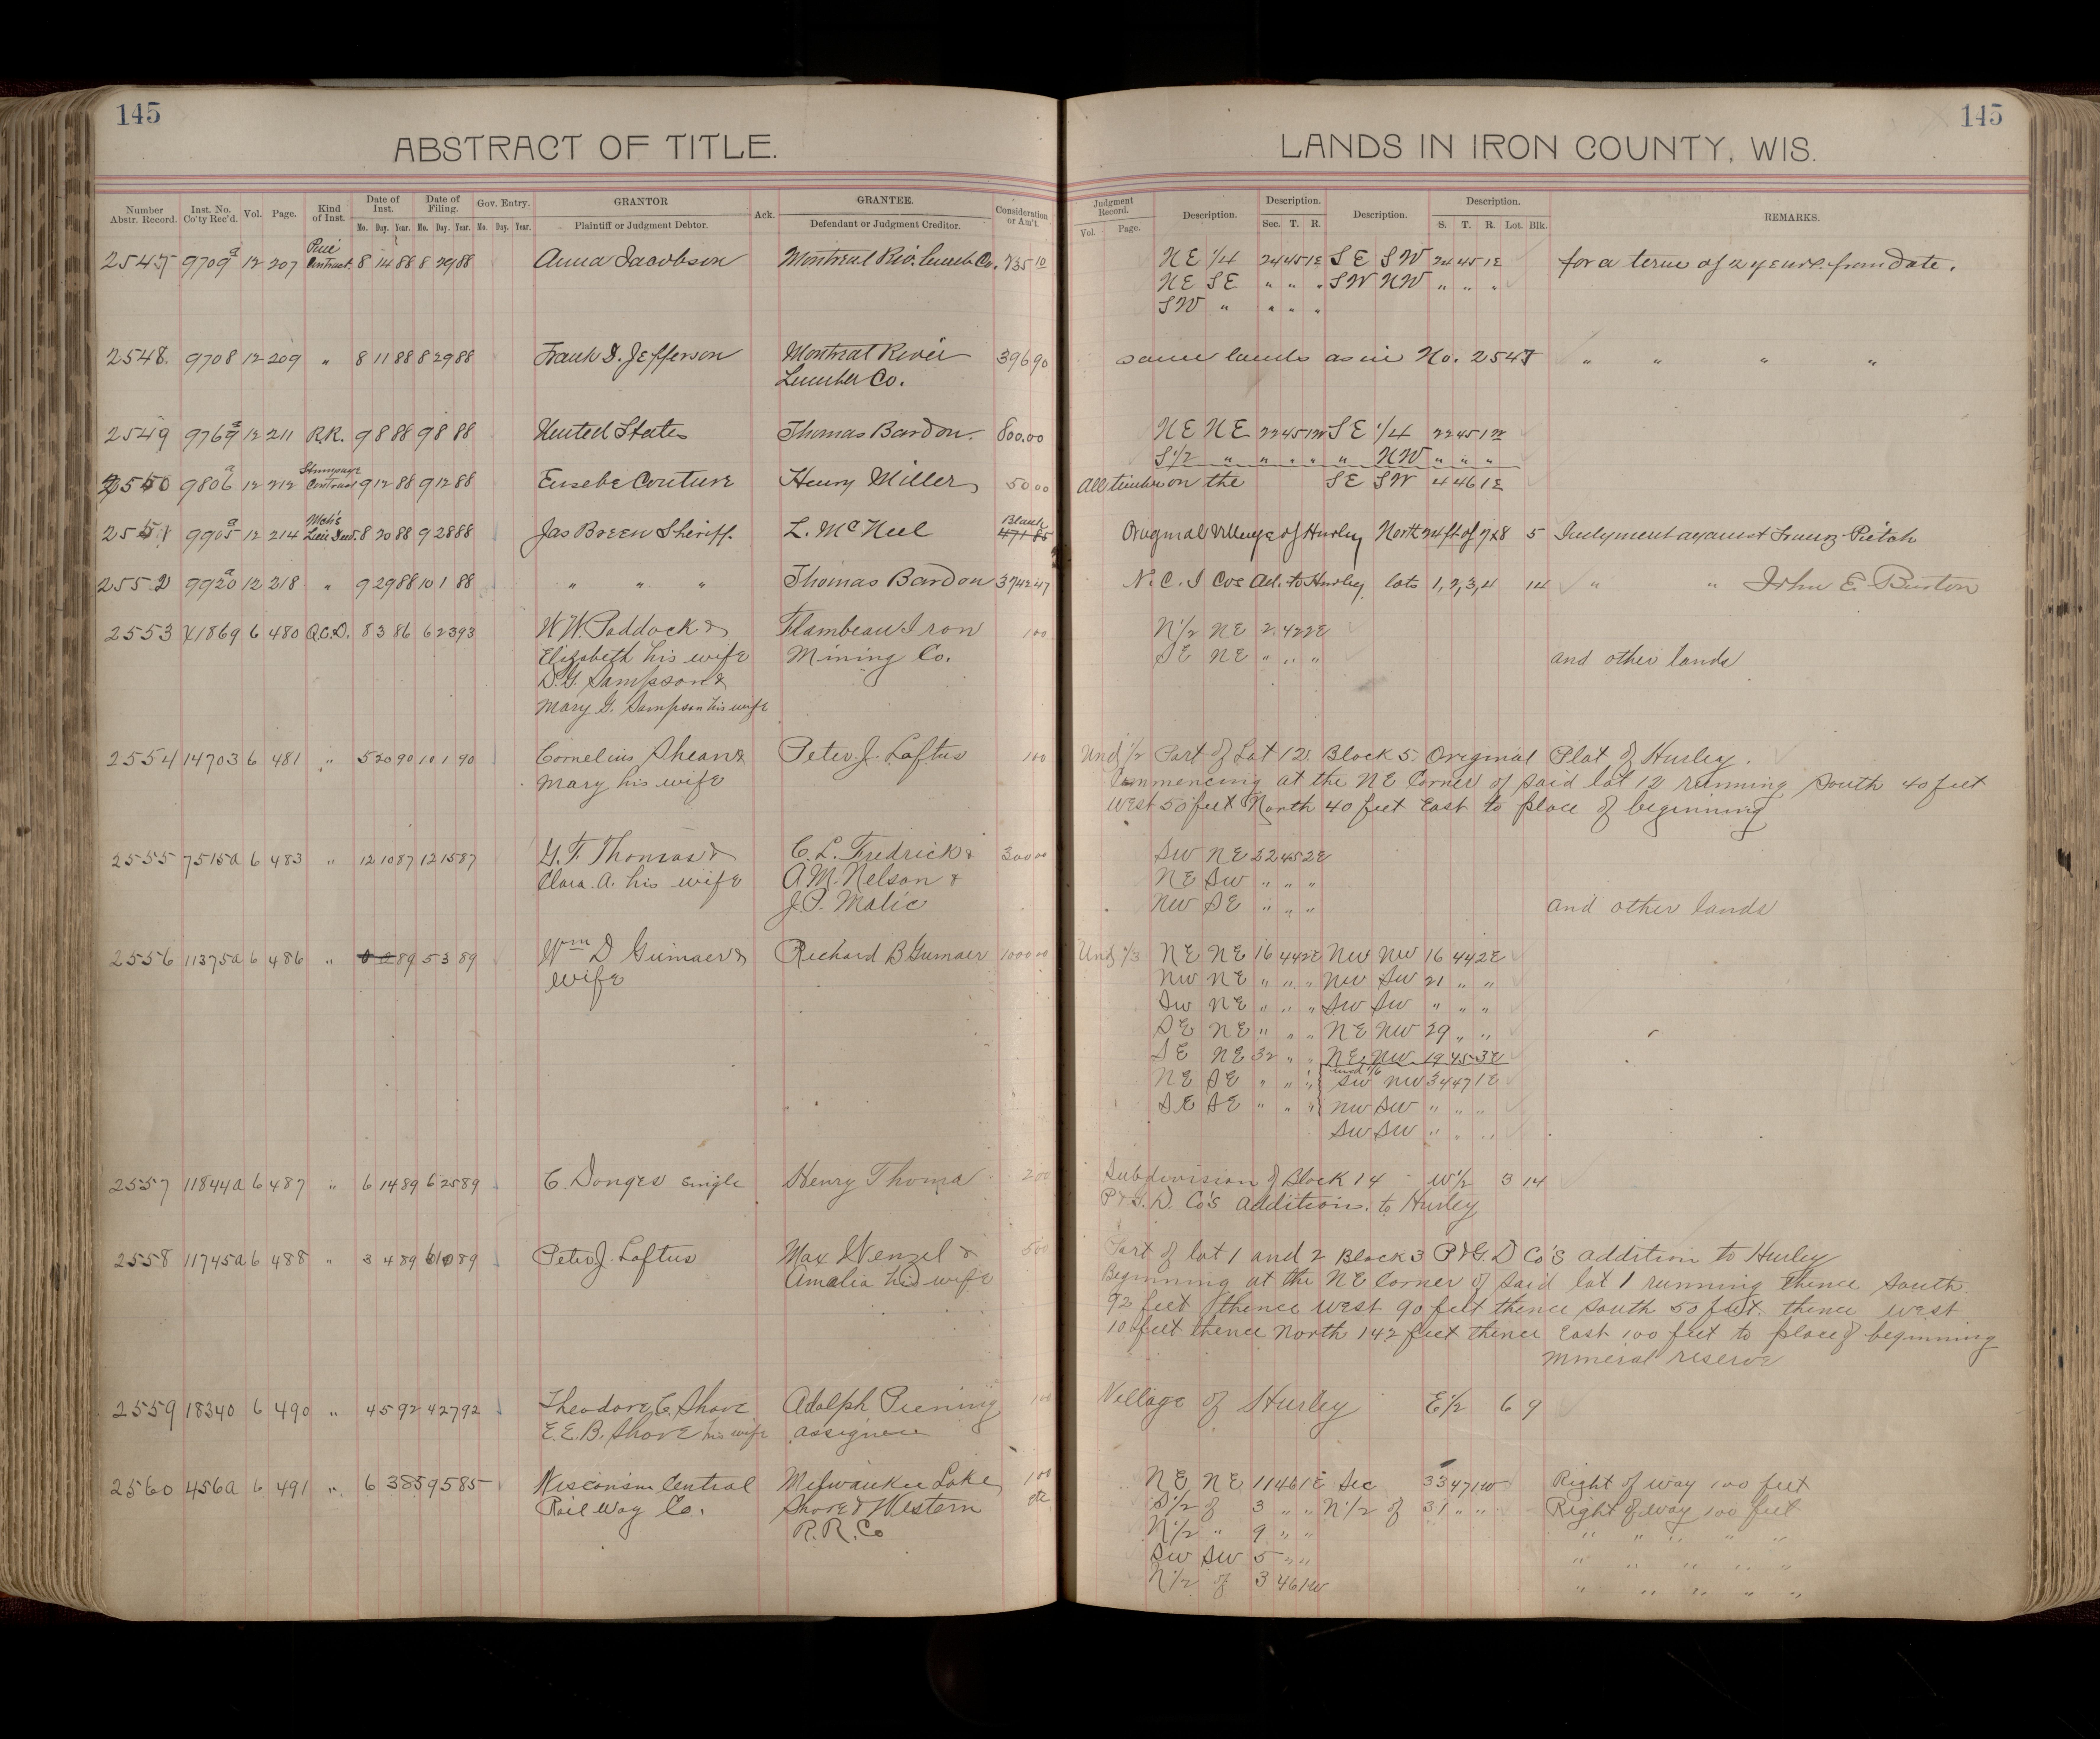 145
ABSTRACT OF TITLE.
Number Abstr. Record. Inst. No. Co'ty Rec'd. Vol. Page. Kind of Inst. Date of Inst. Mo. Day. Year. Date of Filing. Mo. Day. Year. Gov. Entry. Mo. Day. Year. GRANTOR Plaintiff or Judgment Debtor. Ack. GRANTEE. Defendant or Judgment Creditor. Consideration or Am't.
2547 9709a 12 207 Contract. 8 14 88 8 29 88 Anna Jacobson Montreal Riv. Lumb Co. 735 10
2548. 9708 12 209 " 8 11 88 8 29 88 Frank D. Jefferson Montreal River 396 90
Lumber Co.
2549 9769a 12 211 R.R. 9 8 88 9 8 88 United States Thomas Bardon. 800.00
Stumpage
2550 9806a 12 212 Contract 9 12 88 9 12 88 Eusebe Couture Henry Miller 50 00
Mch's Blank
2551 9905a 12 214 Lien Deed. 8 20 88 9 28 88 Jas Breen Sheriff. L. McNeel 471 85
2552 9920a 12 218 " 9 29 88 10 1 88 " " " Thomas Bardon 3742.47
2553 X1869 6 480 Q.C.D. 8 3 86 6 23 93 W W. Paddock & Flambeau Iron 1 00
Elizabeth his wife Mining Co.
D. G. Sampson &
Mary G. Sampson his wife
2554 14703 6 481 " 5 20 90 10 1 90 Cornelius Shean & Peter J. Loftus 1 00
Mary his wife
2555 7515a 6 483 " 12 10 87 12 15 87 G. F. Thomas & C. L. Fredrick & 300 00
Clara. A. his wife A. M. Nelson &
J. P. Malie
2556 11375a 6 486 " 89 5 3 89 Wm D Gumaer & Richard B Gumaer 1000 00
wife
2557 11844a 6 487 " 6 14 89 6 25 89 C. Donges single Henry Thoma 200
2558 11745a 6 488 " 3 4 89 6 10 89 Peter J. Loftus Max Wenzel & 500
Amalia his wife
2559 18340 6 490 " 4 5 92 4 27 92 Theodore C. Shove Adolph Piening 1 00
E. E. B. Shove his wife assignee
2560 456a 6 491 " 6 3 85 9 5 85 Wisconsin Central Milwaukee Lake 1 00
Rail Way Co. Shore & Western etc
R. R. Co
145
LANDS IN IRON COUNTY, WIS.
Judgment Record. Vol. Page. Description. Description. Sec. T. R. Description. Description. S. T. R. Lot. Blk. REMARKS.
NE 1/4 24 45 1E SE SW 24 45 1E for a term of 2 years from date.
NE SE " " " SW NW " " "
SW " " " "
same lands as in No. 2547 " " " "
NE NE 22 45 1W SE 1/4 22 45 1W
S1/2 " " " " " NW " " "
All timber on the SE SW 4 46 1E
Original Village of Hurley North 24 ft of 7 & 8 5 Judgment against Franz Pietch
N. C. I Co's Ad. to Hurley lots 1, 2, 3, 4 14 " " John E Burton
N1/2 NE 2. 42 2E
SE NE " " " and other lands
Und 1/2 Part of Lot 12. Block 5. Original Plat of Hurley.
Commencing at the NE Corner of said lot 12 running South 40 feet
West 50 feet North 40 feet East to place of beginning
SW NE 22 45 2E
NE SW " " "
NW SE " " " and other lands
Und 1/3 NE NE 16 44 2E NW NW 16 44 2E
NW NE " " " NW SW 21 " "
SW NE " " " SW SW " " "
SE NE " " " NE NW 29 " "
SE NE 32 " " NE NW 19 45 3E
NE SE " " " und 1/6 SW NW 34 47 1E
SE SE " " " NW SW " " "
SW SW " " "
Subdivision of Block 14 W1/2 3 14
P & G. D. Co's Addition. to Hurley
Part of lot 1 and 2 Block 3 P & G D Co's addition to Hurley
Beginning at the NE Corner of said lot 1 running thence South
92 feet thence West 90 feet thence South 50 feet. thence West
10 feet thence North 142 feet thence East 100 feet to place of beginning
mineral reserve
Village of Hurley E1/2 6 9
NE NE 11 46 1E Sec 33 47 1W Right of way 100 feet
S1/2 of 3 " " N1/2 of 31 " " Right of Way 100 feet
N1/2 " 9 " " " " " " "
SW SW 5 " " " " " " "
N1/2 of 3 46 1W " " " " "